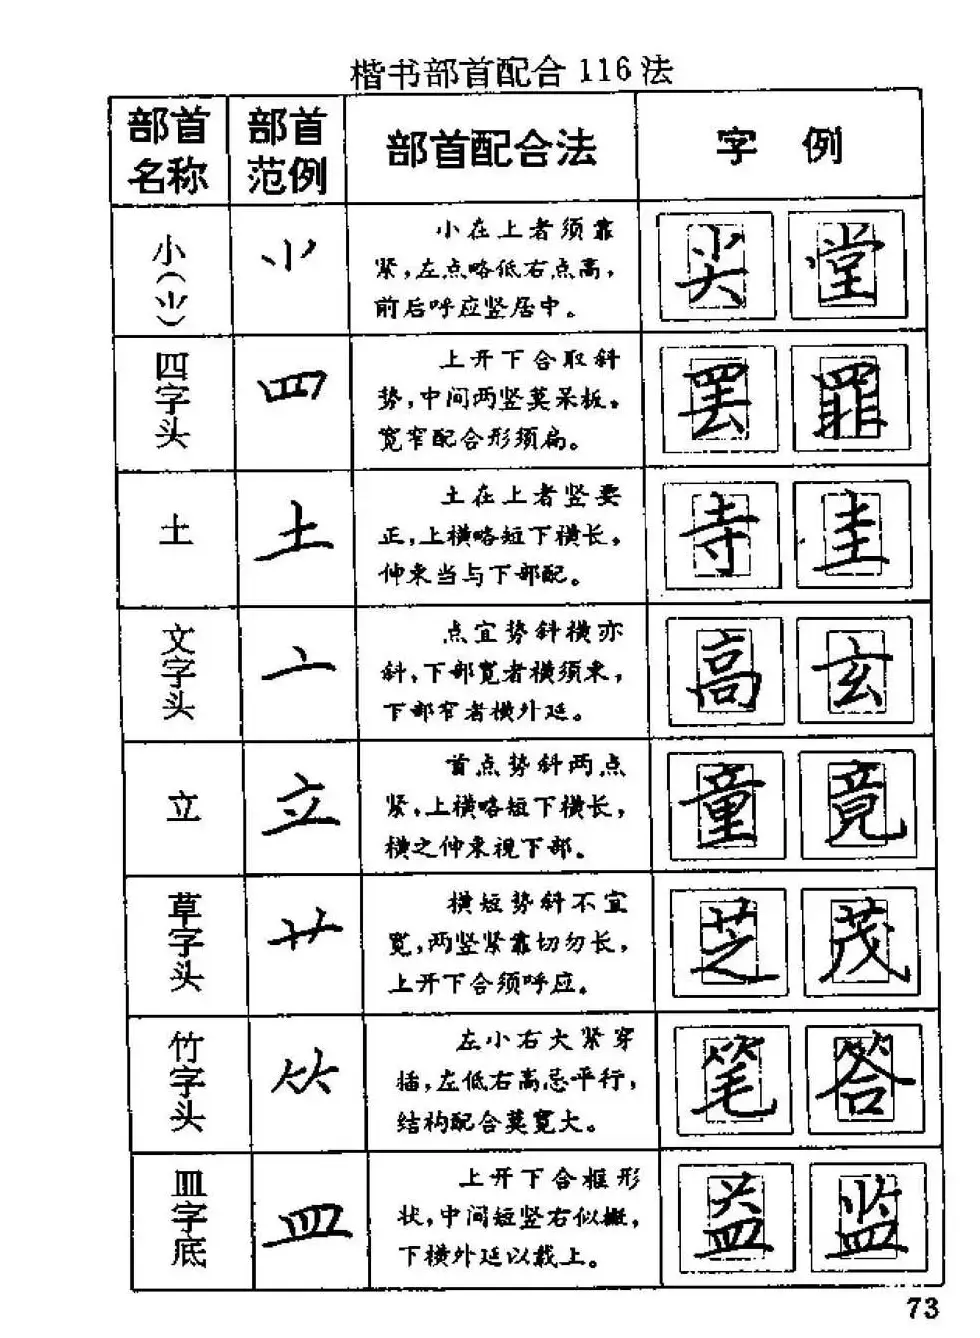 楷书部首配合116法
部首名称 部首范例 部首配合法 字例
小(⺌) ⺌ 小在上者须靠
紧,左点略低右点高,
前后呼应竖居中。
尖 堂
四字头 罒 上开下合取斜
势,中间两竖莫呆板。
宽窄配合形须扁。
罢 罪
土 土 土在上者竖要
正,上横略短下横长。
伸束当与下部配。
寺 圭
文字头 亠 点宜势斜横亦
斜,下部宽者横须束,
下部窄者横外延。
高 玄
立 立 首点势斜两点
紧,上横略短下横长,
横之伸束视下部。
童 竟
草字头 艹 横短势斜不宜
宽,两竖紧靠切勿长,
上开下合须呼应。
芝 茂
竹字头 ⺮ 左小右大紧穿
插,左低右高忌平行,
结构配合莫宽大。
笔 答
皿字底 皿 上开下合框形
状,中间短竖右似撇,
下横外延以载上。
益 监
73